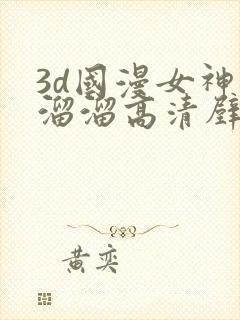 3d國漫女神
溜溜高清壁
黄奕